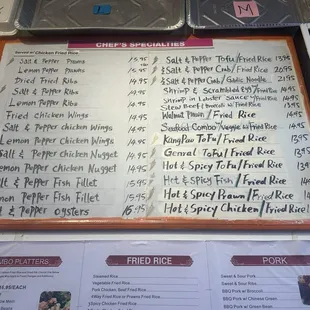 M
CHEF'S SPECIALTIES
Served w/ Chicken Fried Rice
Salt & Pepper Prawns 15.95
Lemon Pepper Prawns 15.95
Dried Fried Ribs 14.95
Salt & Pepper Ribs 14.95
Lemon Pepper Ribs 14.95
Fried chicken Wings 14.95
Salt & Pepper chicken Wings 14.95
Lemon Pepper chicken Wings 14.95
Salt & Pepper chicken Nugget 14.95
Lemon Pepper chicken Nugget 14.95
Salt & Pepper Fish Fillet 15.95
Lemon Pepper Fish Fillet 15.95
Salt & Pepper oysters 15.95
Salt & Pepper Tofu/Fried Rice 13.95
Salt & Pepper Crab/Fried Rice 26.95
Salt & Pepper Crab/Garlic Noodle 29.95
Shrimp & Scrambled Egg/Fried Rice 14.95
Shrimp in Lobster Sauce/Fried Rice
Stew Beef/Broccoli w/Fried Rice 14.95
Walnut Prawn/Fried Rice 14.95
Seafood Combo/Veggie w/Rice 14.95
Kang Pao Tofu/Fried Rice 13.95
Genral Tofu/Fried Rice 13.95
Hot & Spicy Tofu/Fried Rice 13.95
Hot & Spicy Fish/Fried Rice 14.95
Hot & Spicy Prawn/Fried Rice 14.95
Hot & Spicy Chicken/Fried Rice
PLATTERS
EACH
FRIED RICE
Steamed Rice
Vegetable Fried Rice
Pork Chicken, Beef Fried Rice
4 Way Fried Rice or Prawns Fried Rice
PORK
Sweet & Sour Pork
BBQ Pork w/ Broccoli
BBQ Pork w/ Chinese Green